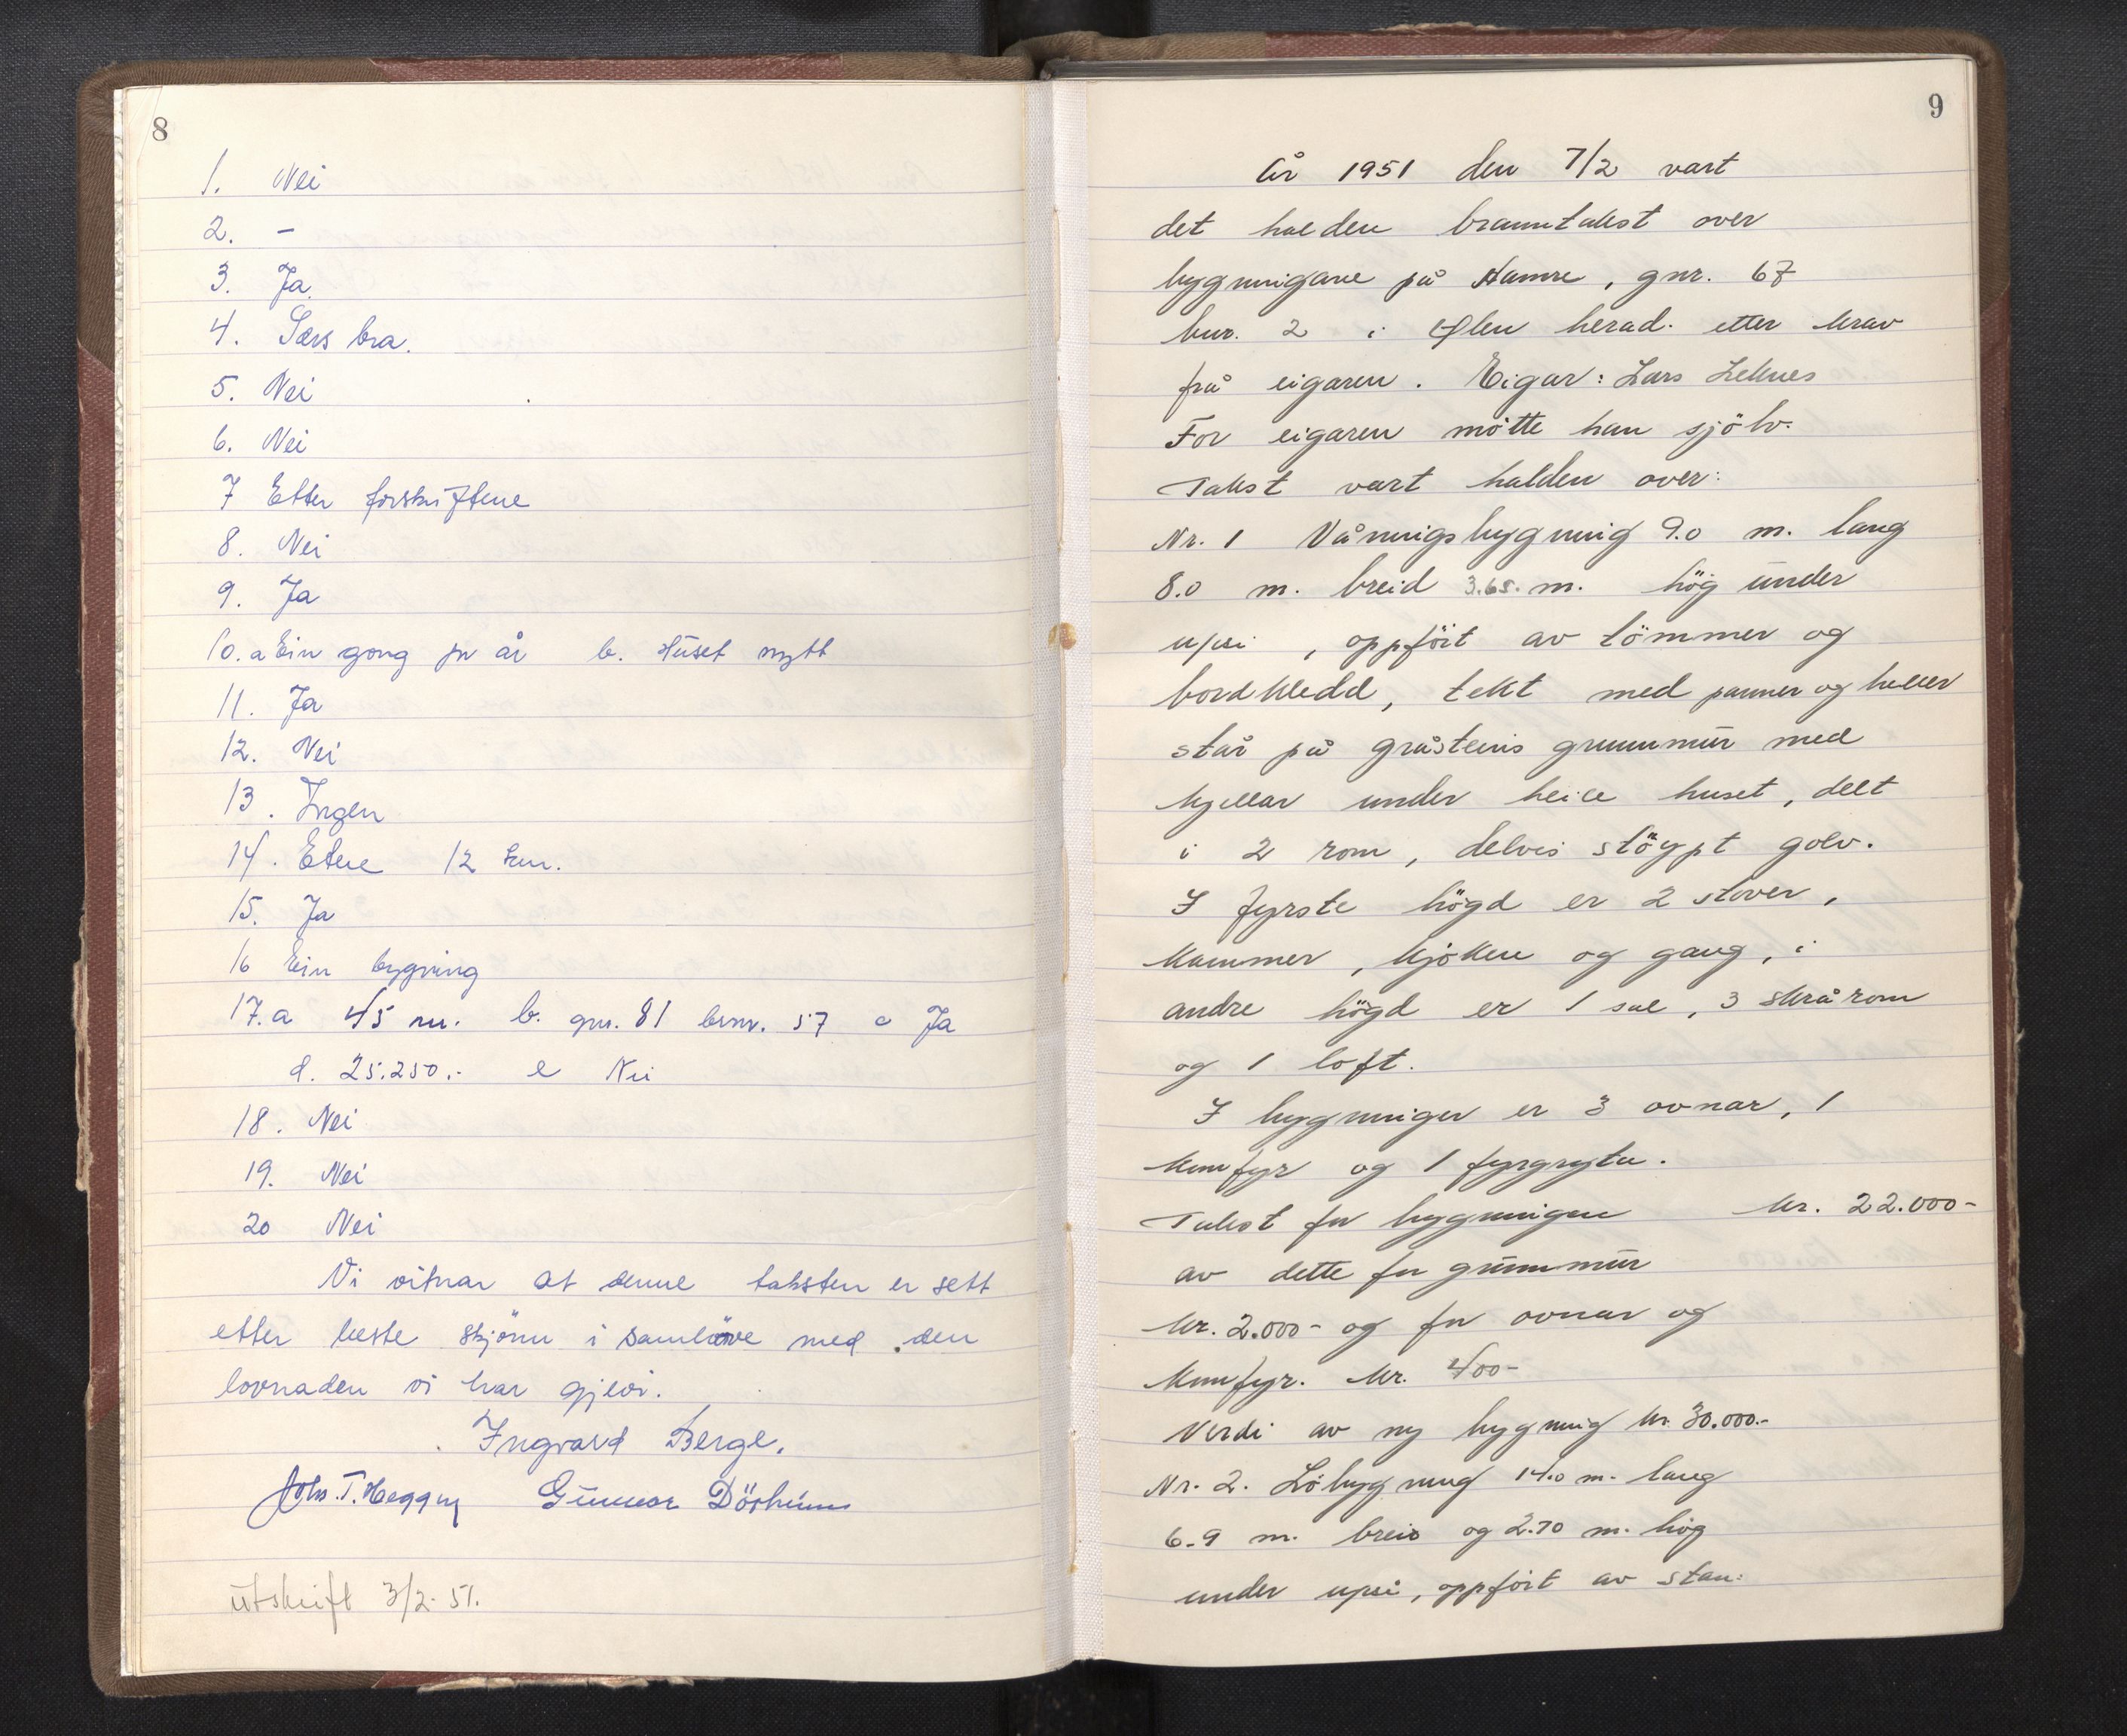 8
1. Nei
2. -
3. Ja.
4. Særs bra.
5. Nei
6. Nei
7 Etter forskriftene
8. Nei
9. Ja
10. a Ein gong pr år b. Huset nytt
11. Ja
12. Nei
13. Ingen
14. Etne 12 km.
15. Ja
16 Ein bygning
17. a 45 m. b. gnr. 81 brnr. 57 c Ja
d. 25.250.- e Nei
18. Nei
19. Nei
20 Nei
Vi vitnar at denne taksten er sett
etter beste skjönn i samhöve med den
lovnaden vi har gjevi.
Ingvard Berge.
Johs. T. Heggen Gunnar Dörheim
utskrift 3/2-51.
9
År 1951 den 7/2 vart
det halden branntakst over
bygningane på Hamre, gnr. 67
bnr. 2 i Ølen herad. etter krav
frå eigaren. Eigar: Lars Leknes
For eigaren møtte han sjölv.
Takst vart halden over:
Nr. 1 Våningsbygning 9.0 m. lang
8.0 m. breid 3.65. m. hög under
upsi, oppfört av tömmer og
bordkledd, tekt med panner og heller
står på gråsteins grunnmur med
kjellar under heile huset, delt
i 2 rom, delvis stöypt golv.
I fyrste högd er 2 stover,
kammer, kjöken og gang, i
andre högd er 1 sal, 3 skrårom
og 1 loft.
I bygningen er 3 ovnar, 1
komfyr og 1 fyrgryta.
Takst for bygningen kr. 22.000-
av dette for grunnmur
kr. 2.000- og for ovnar og
komfyr. kr. 400-
Verdi av ny bygning kr. 30.000.-
Nr. 2. Löbygning 14.0 m. lang
6.9 m. breid og 2.70 m. hög
under upsi, oppfört av stav: